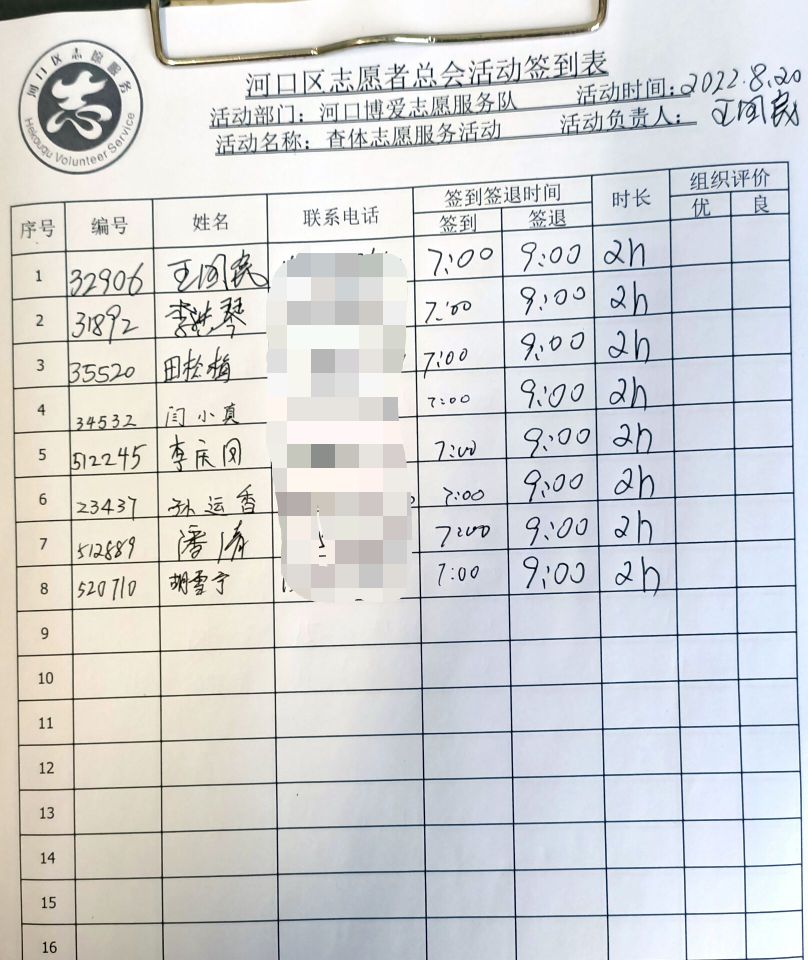 河口区志愿服务
志
Hekouqu Volunteer Service
河口区志愿者总会活动签到表
活动部门：河口博爱志愿服务队 活动时间：2022.8.20
活动名称：查体志愿服务活动 活动负责人：王国民
序号 编号 姓名 联系电话 签到签退时间 时长 组织评价
签到 签退 优 良
1 32906 王国民 7:00 9:00 2h
2 31892 李洪琴 7:00 9:00 2h
3 35520 田松梅 7:00 9:00 2h
4 34532 闫小真 7:00 9:00 2h
5 512245 李庆图 7:00 9:00 2h
6 23437 孙运香 7:00 9:00 2h
7 512889 潘涛 7:00 9:00 2h
8 520710 胡雪宁 7:00 9:00 2h
9
10
11
12
13
14
15
16